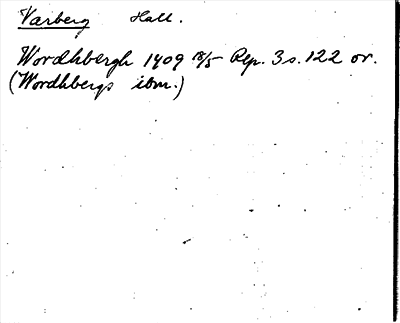 Varberg Hall.
Wordhbergh 1409 8/5 Rep. 3 s. 122 or.
(Wordhbergs ibm.)